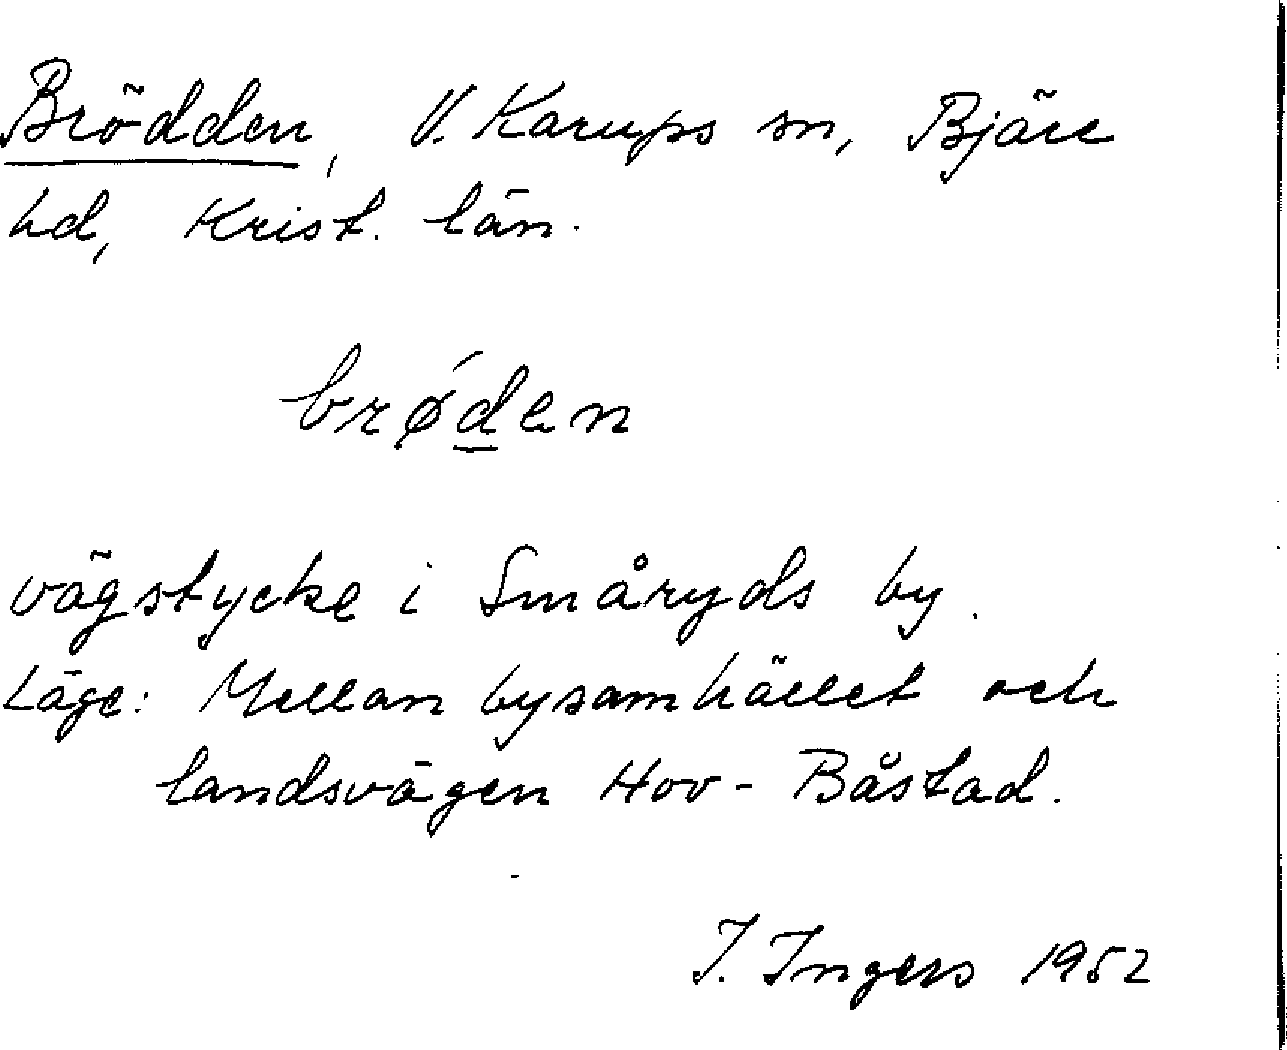 Brödden, V. Karups sn, Bjäre
hd, Krist. län.
brǿd̲en
vägstycke i Småryds by.
Läge: Mellan bysamhället och
landsvägen Hov - Båstad.
I. Ingers 1952